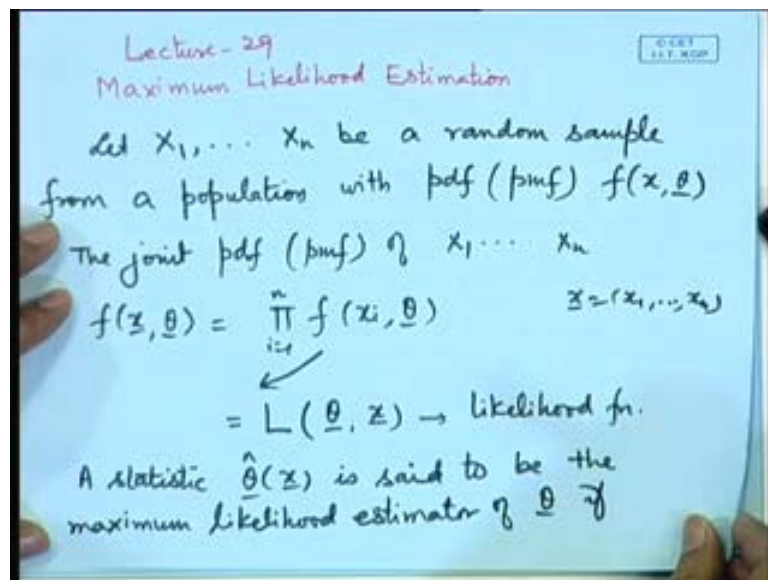 Lecture-29
© CET
I.I.T. KGP
Maximum Likelihood Estimation
Let X₁, ... Xₙ be a random sample
from a population with pdf (pmf) f(x, θ)
The joint pdf (pmf) of X₁ .... Xₙ
f(x, θ) = ∏ᵢ₌₁ⁿ f(xᵢ, θ)    x = (x₁, ..., xₙ)
= L(θ, x) → likelihood fn.
A statistic θ̂(x) is said to be the
maximum likelihood estimator of θ if